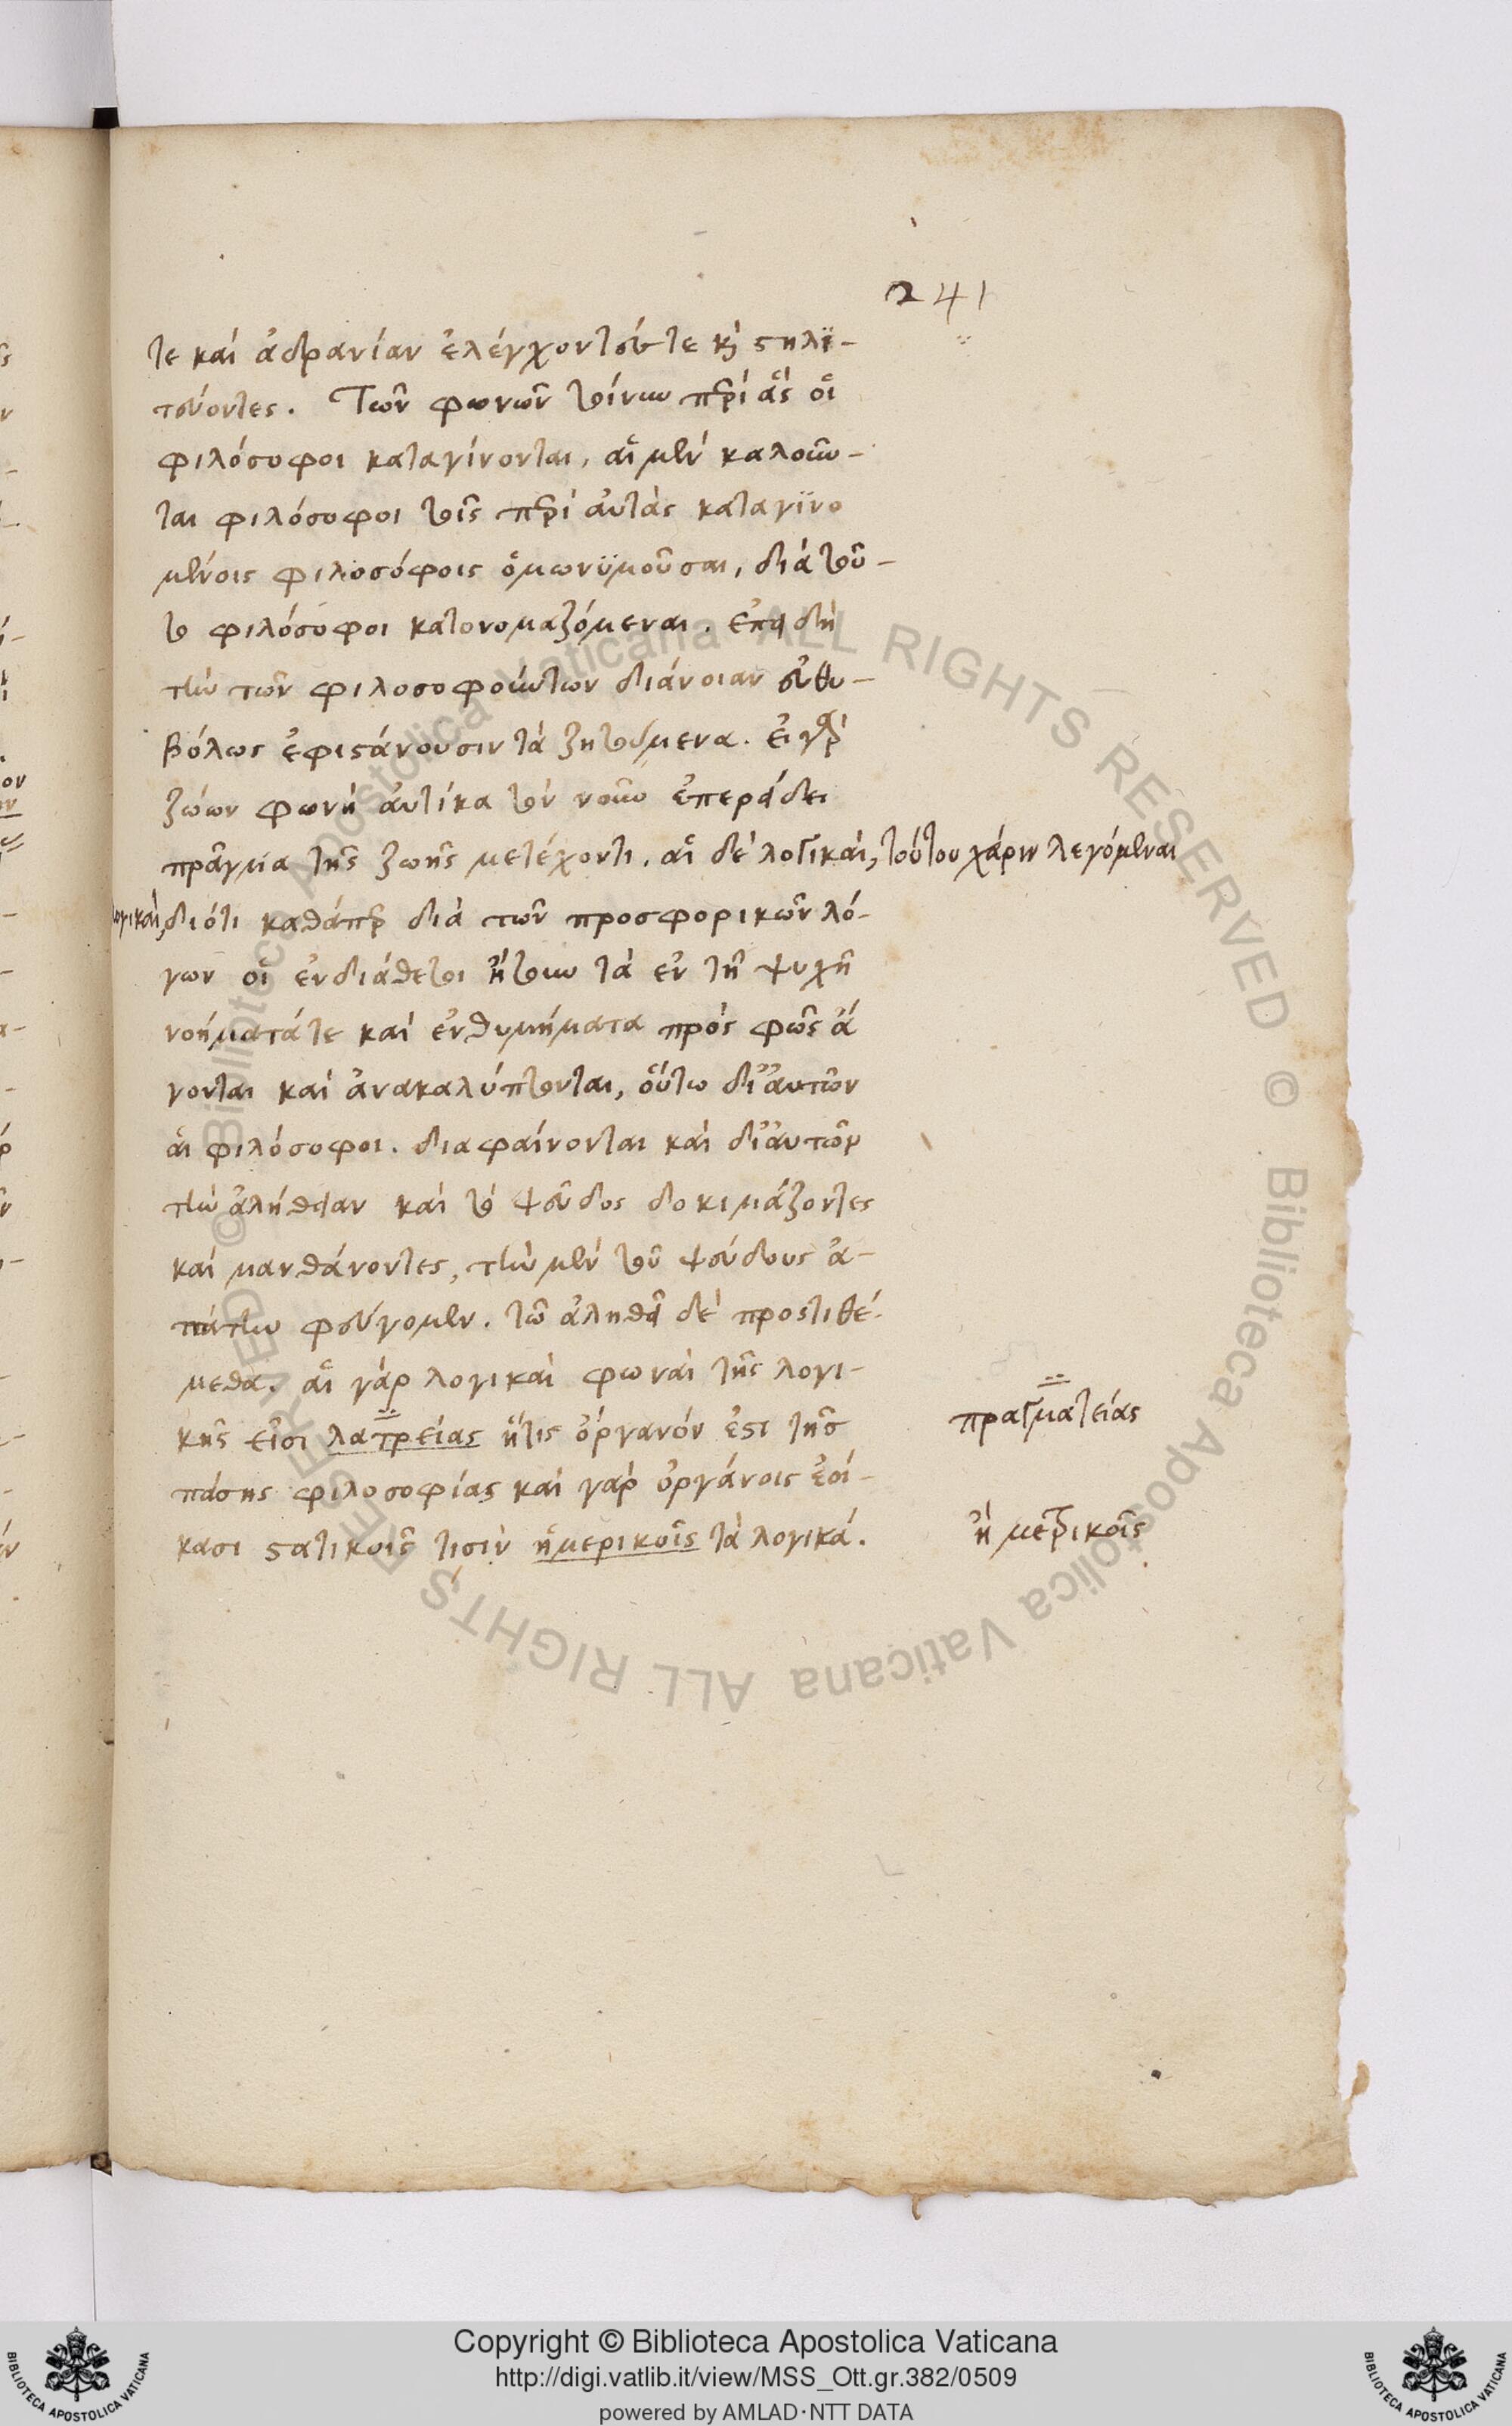 241
τε καὶ ἀδρανίαν ἐλέγχοντές τε καὶ στηλϊ-
τεύοντες. Τῶν φωνῶν τοίνυν περὶ ἃς οἱ
φιλόσοφοι καταγίνονται, αἱ μὲν καλοῦν-
ται φιλόσοφοι τοῖς περὶ αὐτὰς καταγϊνο
μένοις φιλοσόφοις ὁμωνϋμοῦσαι, διὰ τοῦ-
το φιλόσοφοι κατονομαζόμεναι. ἐπειδὴ
τὴν τῶν φιλοσοφούντων διάνοιαν εὐθυ-
βόλως ἐφιστάνουσιν τὰ ζητούμενα. εἰ γὰρ
ζώων φωνὴ αὐτίκα τὸν νοῦν ἐπερείδει
πρᾶγμα τῆς ζωῆς μετέχοντι. αἱ δὲ λογικαὶ, τούτου χάριν λεγόμεναι
λογικαὶ, διότι καθάπερ διὰ τῶν προσφορικῶν λό-
γων οἱ ἐνδιάθετοι ἤτουν τὰ ἐν τῇ ψυχῇ
νοήματά τε καὶ ἐνθυμήματα πρὸς φῶς ἄ
γονται καὶ ἀνακαλύπτονται, οὕτω δι' αὐτῶν
αἱ φιλόσοφοι. διαφαίνονται καὶ δι' αὐτῶν
τὴν ἀλήθειαν καὶ τὸ ψεῦδος δοκιμάζοντες
καὶ μανθάνοντες, τὴν μὲν τοῦ ψεύδους ἀ-
πάτην φεύγομεν. τῶ ἀληθεῖ δὲ προστιθέ-
μεθα. αἱ γὰρ λογικαὶ φωναὶ τῆς λογι-
κῆς εἰσι λατρείας ἥτις ὄργανόν ἐστι τῆς
πραγματείας
πάσης φιλοσοφίας καὶ γὰρ ὀργάνοις ἐοί-
κασι στατικοῖς τισὶν ἡμερικοῖς τὰ λογικά.
ἢ μετρικοῖς
Copyright © Biblioteca Apostolica Vaticana
http://digi.vatlib.it/view/MSS_Ott.gr.382/0509
powered by AMLAD·NTT DATA